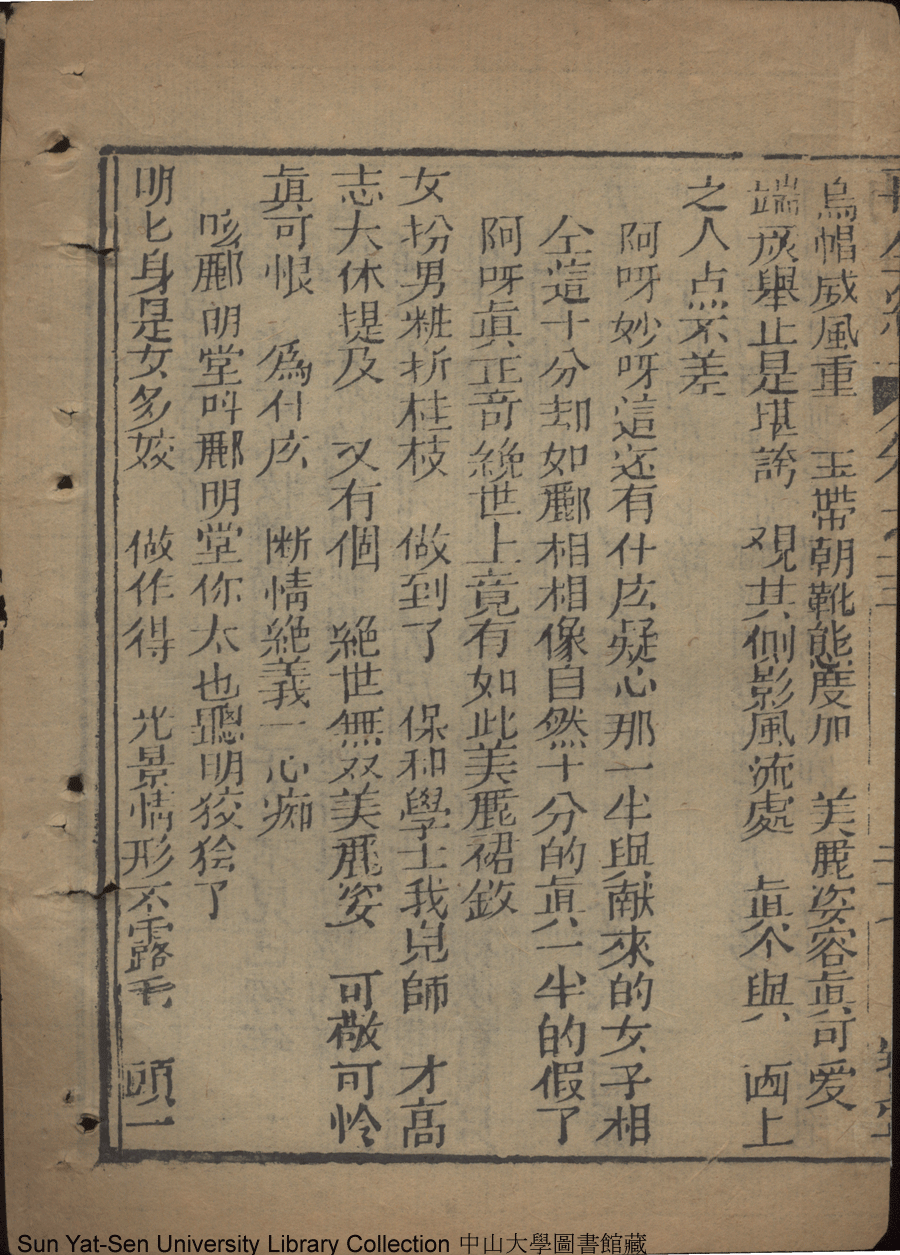 烏帽威風重　玉帶朝靴態度加　美麗姿容眞可爱
端庄舉止是堪誇　覌其側影風流處　眞个與　画上
之人点不差
阿呀妙呀這还有什庅疑心那一半與献來的女子相
仝這十分却如酈相相像自然十分的眞一半的假了
阿呀眞正奇絶世上竟有如此美麗裙釵
女扮男粧折桂枝　做到了　保和學士我兒師　才高
志大休提及　又有個　絶世無双美麗姿　可敬可怜
眞可恨　爲什庅　断情絶義一心痴
咳酈明堂呌酈明堂你太也聰明狡獪了
明匕身是女多姣　做作得　光景情形不露毛　頭一
Sun Yat-Sen University Library Collection 中山大學圖書館藏